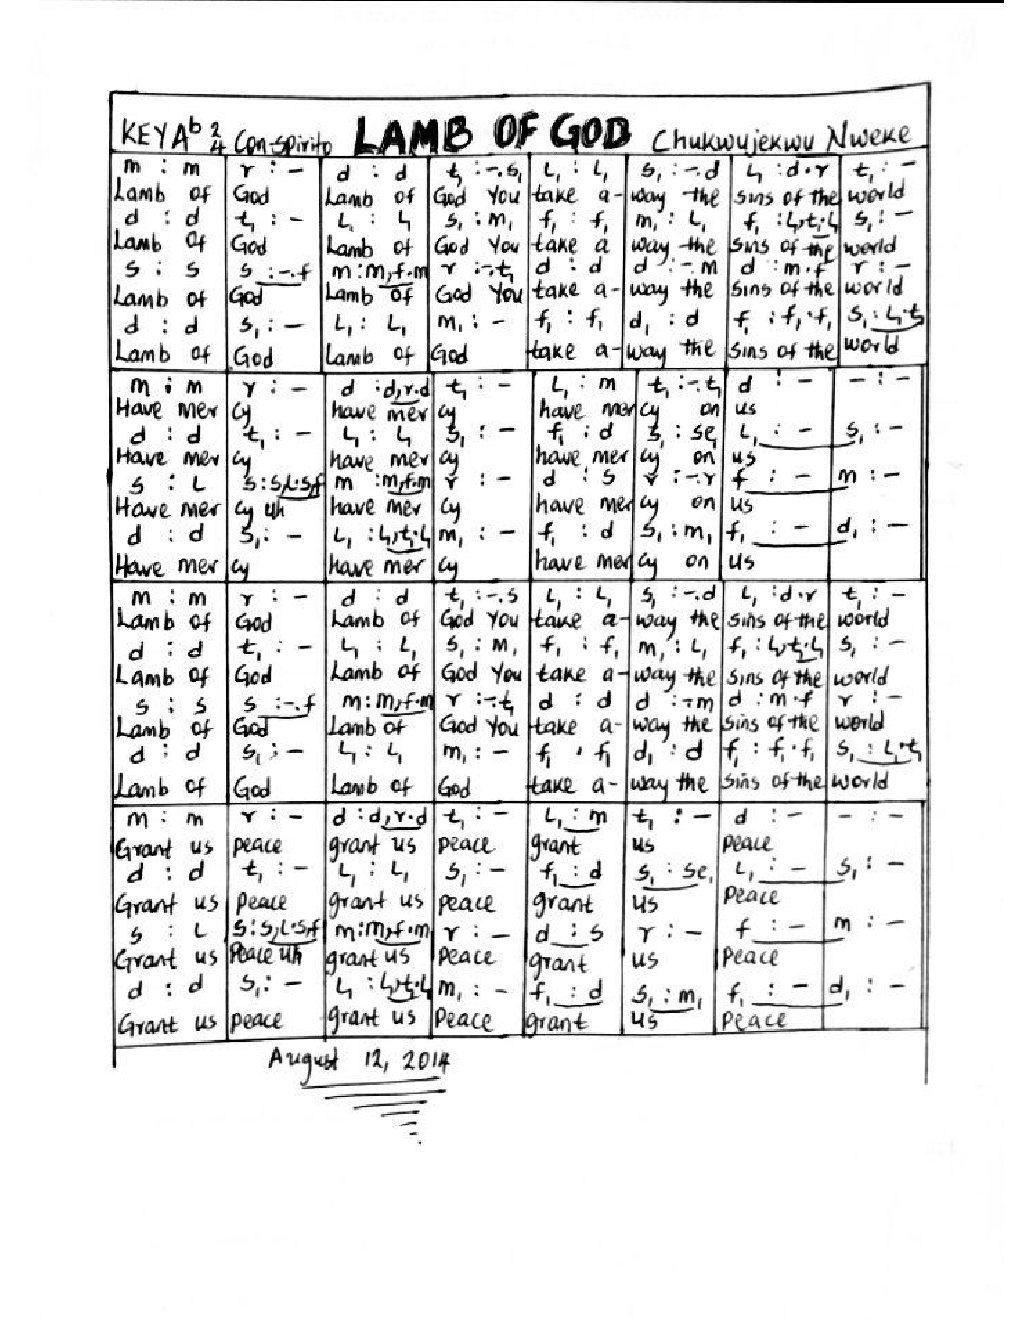 KEY Ab 2/4 Con-spirito LAMB OF GOD Chukwujekwu Nweke
m : m | r : - | d : d | t₁ :-.s₁ | l₁ : l₁ | s₁ :-.d | l₁ :d.r | t₁ : -
Lamb of | God | Lamb of | God You | take a- | way the | sins of the | world
d : d | t₁ : - | l₁ : l₁ | s₁ : m₁ | f₁ : f₁ | m₁ : l₁ | f₁ :l₁,t₁.l₁ | s₁ : -
Lamb of | God | Lamb of | God You | take a | way the | sins of the | world
s : s | s :-.f | m:m,f.m | r :-.t₁ | d : d | d :-.m | d :m.f | r : -
Lamb of | God | Lamb of | God You | take a- | way the | sins of the | world
d : d | s₁ : - | l₁ : l₁ | m₁ : - | f₁ : f₁ | d₁ : d | f₁ :f₁.f₁ | s₁ : l₁.t₁
Lamb of | God | Lamb of | God | take a- | way the | sins of the | world
m : m | r : - | d :d,r.d | t₁ : - | l₁ : m | t₁ :-.t₁ | d : - | - : -
Have mer | cy | have mer | cy | have mer | cy on | us
d : d | t₁ : - | l₁ : l₁ | s₁ : - | f₁ : d | s₁ : se₁ | l₁ : - | s₁ : -
Have mer | cy | have mer | cy | have mer | cy on | us
s : l | s:s,l.s,f | m :m,f.m | r : - | d : s | r :-.r | f : - | m : -
Have mer | cy uh | have mer | cy | have mer | cy on | us
d : d | s₁ : - | l₁ :l₁,t₁.l₁ | m₁ : - | f₁ : d | s₁ : m₁ | f₁ : - | d₁ : -
Have mer | cy | have mer | cy | have mer | cy on | us
m : m | r : - | d : d | t₁ :-.s | l₁ : l₁ | s₁ :-.d | l₁ :d.r | t₁ : -
Lamb of | God | Lamb of | God You | take a- | way the | sins of the | world
d : d | t₁ : - | l₁ : l₁ | s₁ : m₁ | f₁ : f₁ | m₁ : l₁ | f₁ :l₁,t₁.l₁ | s₁ : -
Lamb of | God | Lamb of | God You | take a- | way the | sins of the | world
s : s | s :-.f | m:m,f.m | r :-.t₁ | d : d | d :-.m | d :m.f | r : -
Lamb of | God | Lamb of | God You | take a- | way the | sins of the | world
d : d | s₁ : - | l₁ : l₁ | m₁ : - | f₁ : f₁ | d₁ : d | f₁ : f₁.f₁ | s₁ : l₁.t₁
Lamb of | God | Lamb of | God | take a- | way the | sins of the | world
m : m | r : - | d :d,r.d | t₁ : - | l₁ : m | t₁ : - | d : - | - : -
Grant us | peace | grant us | peace | grant | us | peace
d : d | t₁ : - | l₁ : l₁ | s₁ : - | f₁ : d | s₁ : se₁ | l₁ : - | s₁ : -
Grant us | peace | grant us | peace | grant | us | peace
s : l | s:s,l.s,f | m:m,f.m | r : - | d : s | r : - | f : - | m : -
Grant us | Peace uh | grant us | peace | grant | us | peace
d : d | s₁ : - | l₁ :l₁,t₁.l₁ | m₁ : - | f₁ : d | s₁ : m₁ | f₁ : - | d₁ : -
Grant us | peace | grant us | peace | grant | us | peace
August 12, 2014